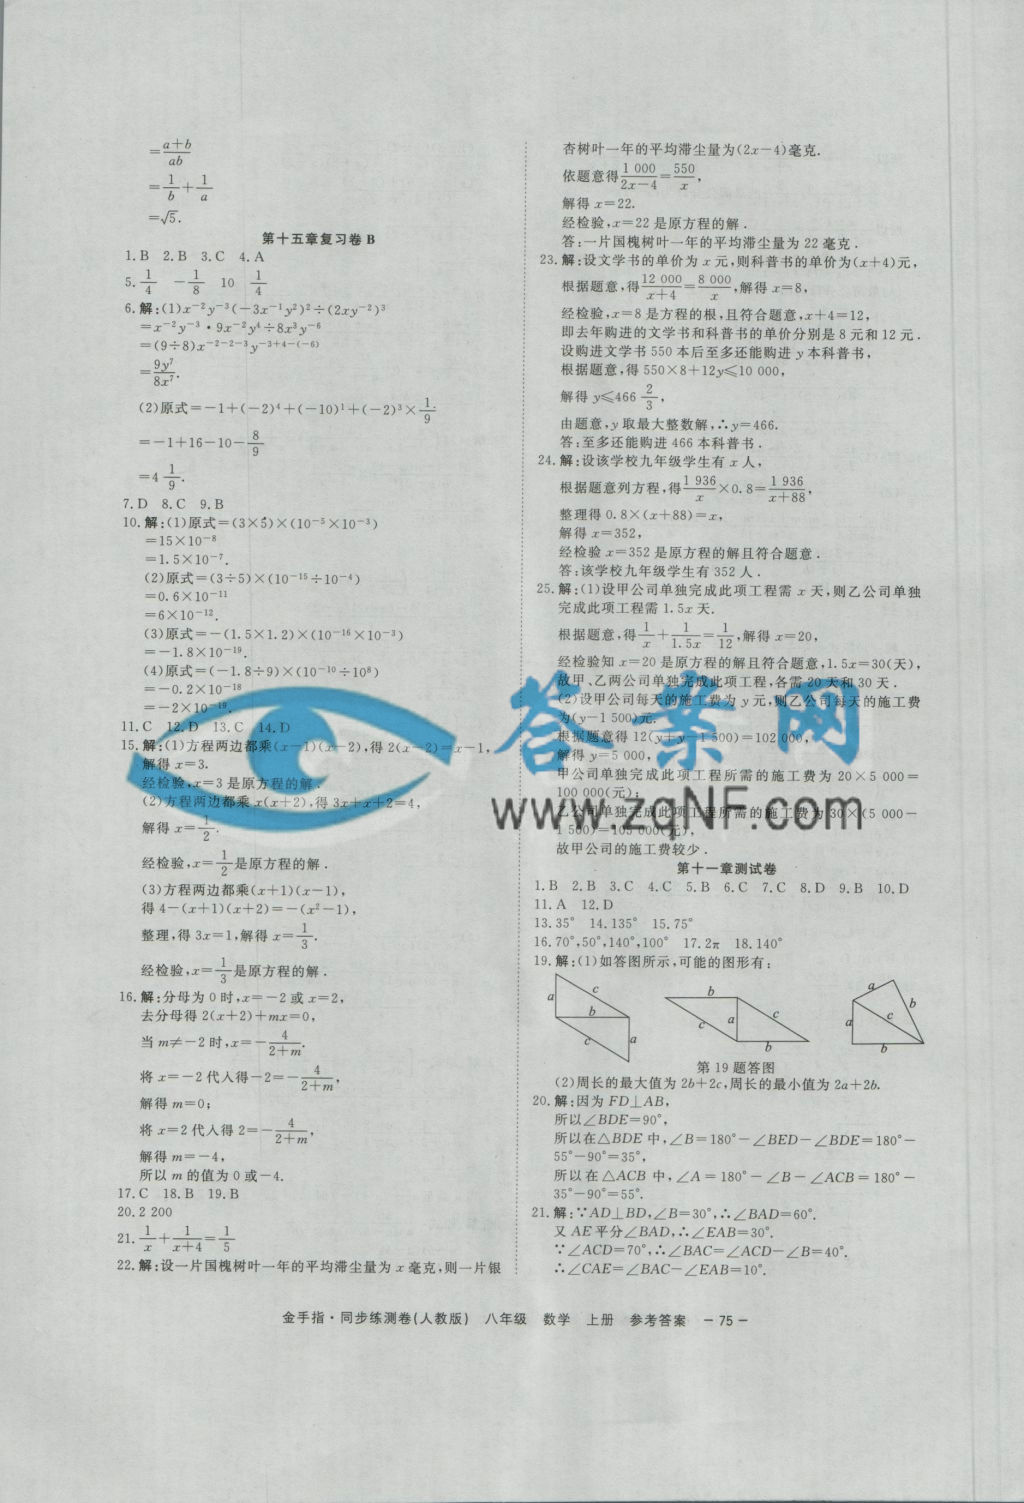 =\frac{a+b}{ab}
=\frac{1}{b}+\frac{1}{a}
=√5.
第十五章复习卷 B
1.B 2.B 3.C 4.A
5.\frac{1}{4} -\frac{1}{8} 10 \frac{1}{4}
6.解:(1)x⁻²y⁻³(-3x⁻¹y²)²÷(2xy⁻²)³
=x⁻²y⁻³·9x⁻²y⁴÷8x³y⁻⁶
=(9÷8)x⁻²⁻²⁻³y⁻³⁺⁴⁻⁽⁻⁶⁾
=\frac{9y⁷}{8x⁷}.
(2)原式=-1+(-2)⁴+(-10)¹+(-2)³×\frac{1}{9}
=-1+16-10-\frac{8}{9}
=4\frac{1}{9}.
7.D 8.C 9.B
10.解:(1)原式=(3×5)×(10⁻⁵×10⁻³)
=15×10⁻⁸
=1.5×10⁻⁷.
(2)原式=(3÷5)×(10⁻¹⁵÷10⁻⁴)
=0.6×10⁻¹¹
=6×10⁻¹².
(3)原式=-(1.5×1.2)×(10⁻¹⁶×10⁻³)
=-1.8×10⁻¹⁹.
(4)原式=(-1.8÷9)×(10⁻¹⁰÷10⁸)
=-0.2×10⁻¹⁸
=-2×10⁻¹⁹.
11.C 12.D 13.C 14.D
15.解:(1)方程两边都乘(x-1)(x-2),得2(x-2)=x-1,
解得x=3.
经检验,x=3是原方程的解.
(2)方程两边都乘x(x+2),得3x+x+2=4,
解得x=\frac{1}{2}.
经检验,x=\frac{1}{2}是原方程的解.
(3)方程两边都乘(x+1)(x-1),
得4-(x+1)(x+2)=-(x²-1),
整理,得3x=1,解得x=\frac{1}{3}.
经检验,x=\frac{1}{3}是原方程的解.
16.解:分母为0时,x=-2或x=2,
去分母得2(x+2)+mx=0,
当m≠-2时,x=-\frac{4}{2+m}.
将x=-2代人得-2=-\frac{4}{2+m},
解得m=0;
将x=2代人得2=-\frac{4}{2+m},
解得m=-4,
所以m的值为0或-4.
17.C 18.B 19.B
20.2 200
21.\frac{1}{x}+\frac{1}{x+4}=\frac{1}{5}
22.解:设一片国槐树叶一年的平均滞尘量为x毫克,则一片银
杏树叶一年的平均滞尘量为(2x-4)毫克.
依题意得\frac{1 000}{2x-4}=\frac{550}{x},
解得x=22.
经检验,x=22是原方程的解.
答:一片国槐树叶一年的平均滞尘量为22毫克.
23.解:设文学书的单价为x元,则科普书的单价为(x+4)元,
根据题意,得\frac{12 000}{x+4}=\frac{8 000}{x},解得x=8,
经检验,x=8是方程的根,且符合题意,x+4=12,
即去年购进的文学书和科普书的单价分别是8元和12元.
设购进文学书550本后至多还能购进y本科普书,
根据题意,得550×8+12y≤10 000,
解得y≤466\frac{2}{3},
由题意,y取最大整数解,∴y=466.
答:至多还能购进466本科普书.
24.解:设该学校九年级学生有x人,
根据题意列方程,得\frac{1 936}{x}×0.8=\frac{1 936}{x+88},
整理得0.8×(x+88)=x,
解得x=352,
经检验x=352是原方程的解且符合题意.
答:该学校九年级学生有352人.
25.解:(1)设甲公司单独完成此项工程需x天,则乙公司单独
完成此项工程需1.5x天.
根据题意,得\frac{1}{x}+\frac{1}{1.5x}=\frac{1}{12},解得x=20,
经检验知x=20是原方程的解且符合题意,1.5x=30(天),
故甲、乙两公司单独完成此项工程,各需20天和30天.
(2)设甲公司每天的施工费为y元,则乙公司每天的施工费
为(y-1 500)元.
根据题意得12(y+y-1 500)=102 000,
解得y=5 000,
甲公司单独完成此项工程所需的施工费为20×5 000=
100 000(元);
乙公司单独完成此项工程所需的施工费为30×(5 000-
1 500)=105 000(元),
故甲公司的施工费较少.
第十一章测试卷
1.B 2.B 3.C 4.C 5.B 6.C 7.C 8.D 9.B 10.D
11.A 12.D
13.35° 14.135° 15.75°
16.70°,50°,140°,100° 17.2π 18.140°
19.解:(1)如答图所示,可能的图形有:
a c b c a
b c a c b
a b a c b
第19题答图
(2)周长的最大值为2b+2c,周长的最小值为2a+2b.
20.解:因为FD⊥AB,
所以∠BDE=90°,
所以在△BDE中,∠B=180°-∠BED-∠BDE=180°-
55°-90°=35°,
所以在△ACB中,∠A=180°-∠B-∠ACB=180°-
35°-90°=55°.
21.解:∵AD⊥BD,∠B=30°,∴∠BAD=60°.
又AE平分∠BAD,∴∠EAB=30°.
∵∠ACD=70°,∴∠BAC=∠ACD-∠B=40°.
∴∠CAE=∠BAC-∠EAB=10°.
金手指·同步练测卷(人教版) 八年级 数学 上册 参考答案 -75-
答案网
www.zqNF.com